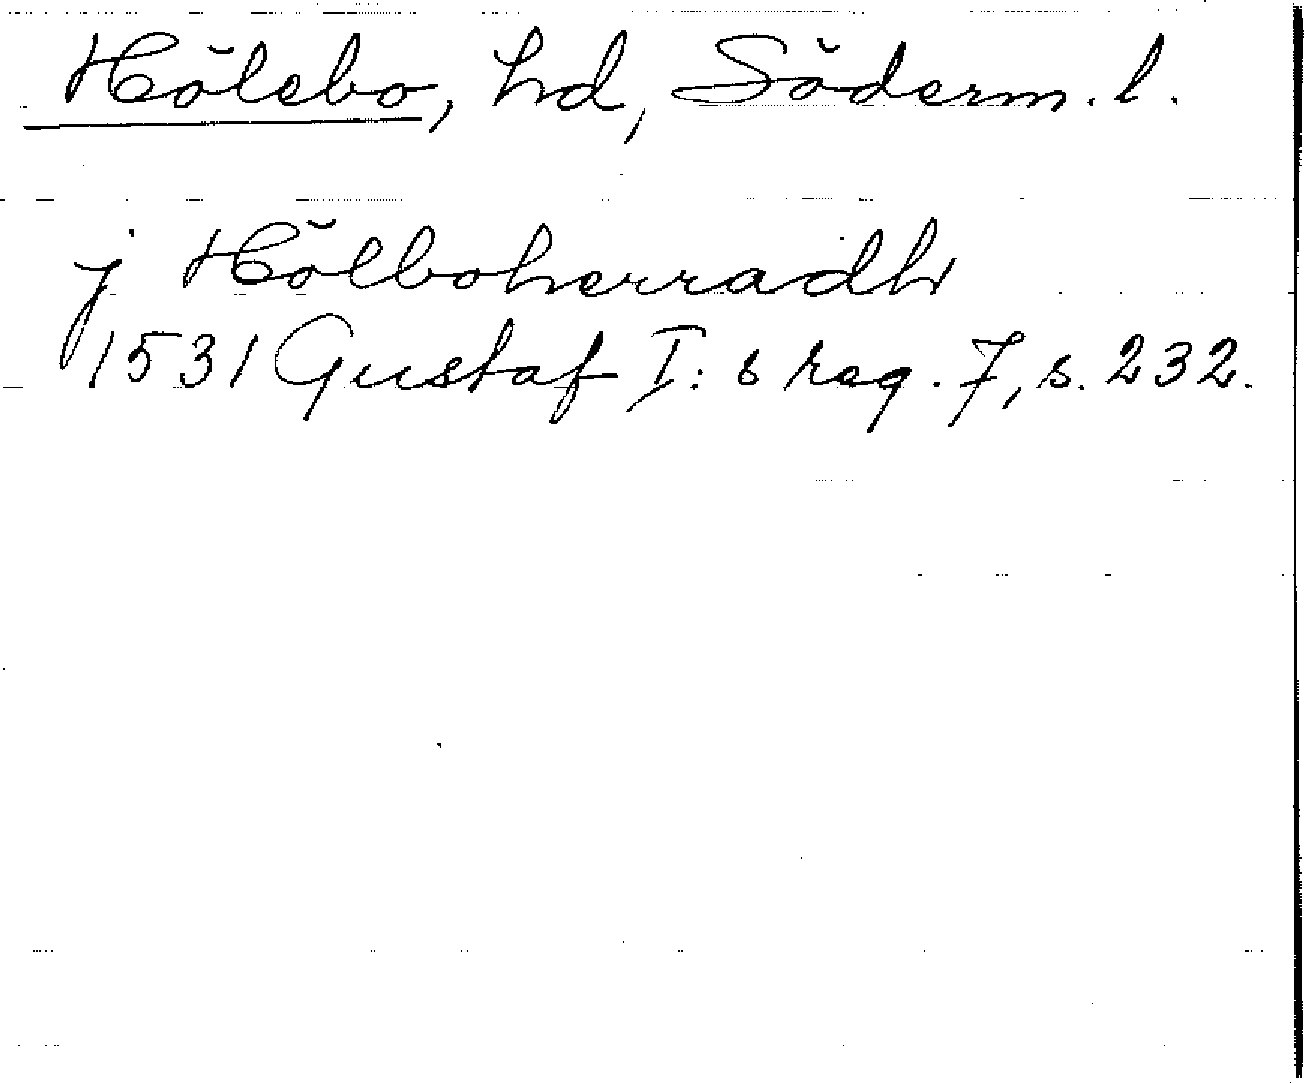 Hölebo, hd, Söderm. l.
j Hölboherradh
1531 Gustaf I: s reg. 7, s. 232.